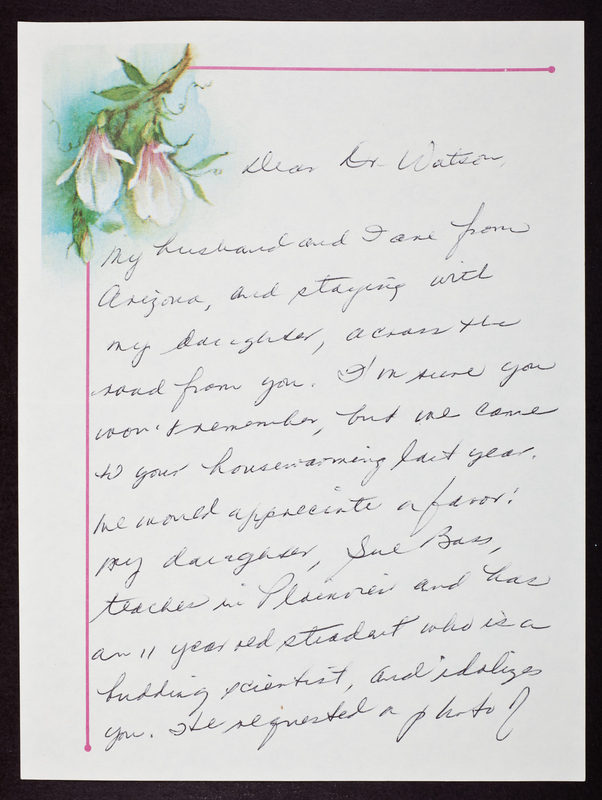 Dear Dr. Watson,
My husband and I are from
Arizona, and staying with
my daughter, across the
road from you. I'm sure you
won't remember, but we came
to your housewarming last year.
We would appreciate a favor!
My daughter, Sue Bass,
teaches in Plainview and has
an 11 year old student who is a
budding scientist, and idolizes
you. He requested a photo of